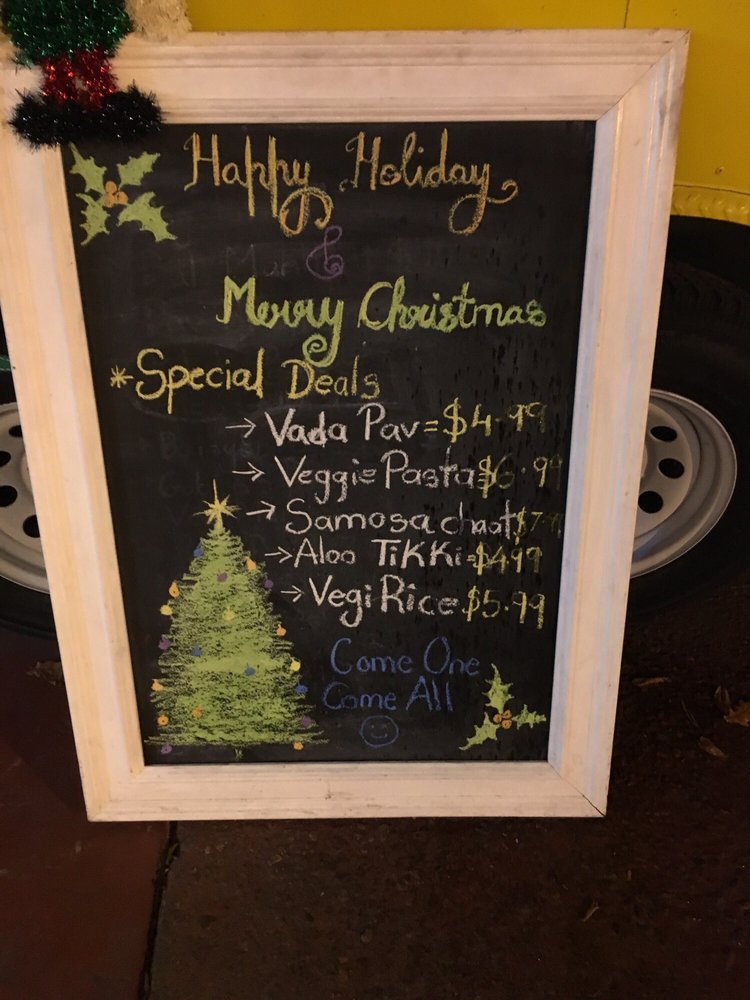 Happy Holiday
&
Merry Christmas
*Special Deals
→ Vada Pav = $4.99
→ Veggie Pasta $6.99
→ Samosa chaat $7.99
→ Aloo TiKKi = $4.99
→ Vegi Rice $5.99
Come One
Come All